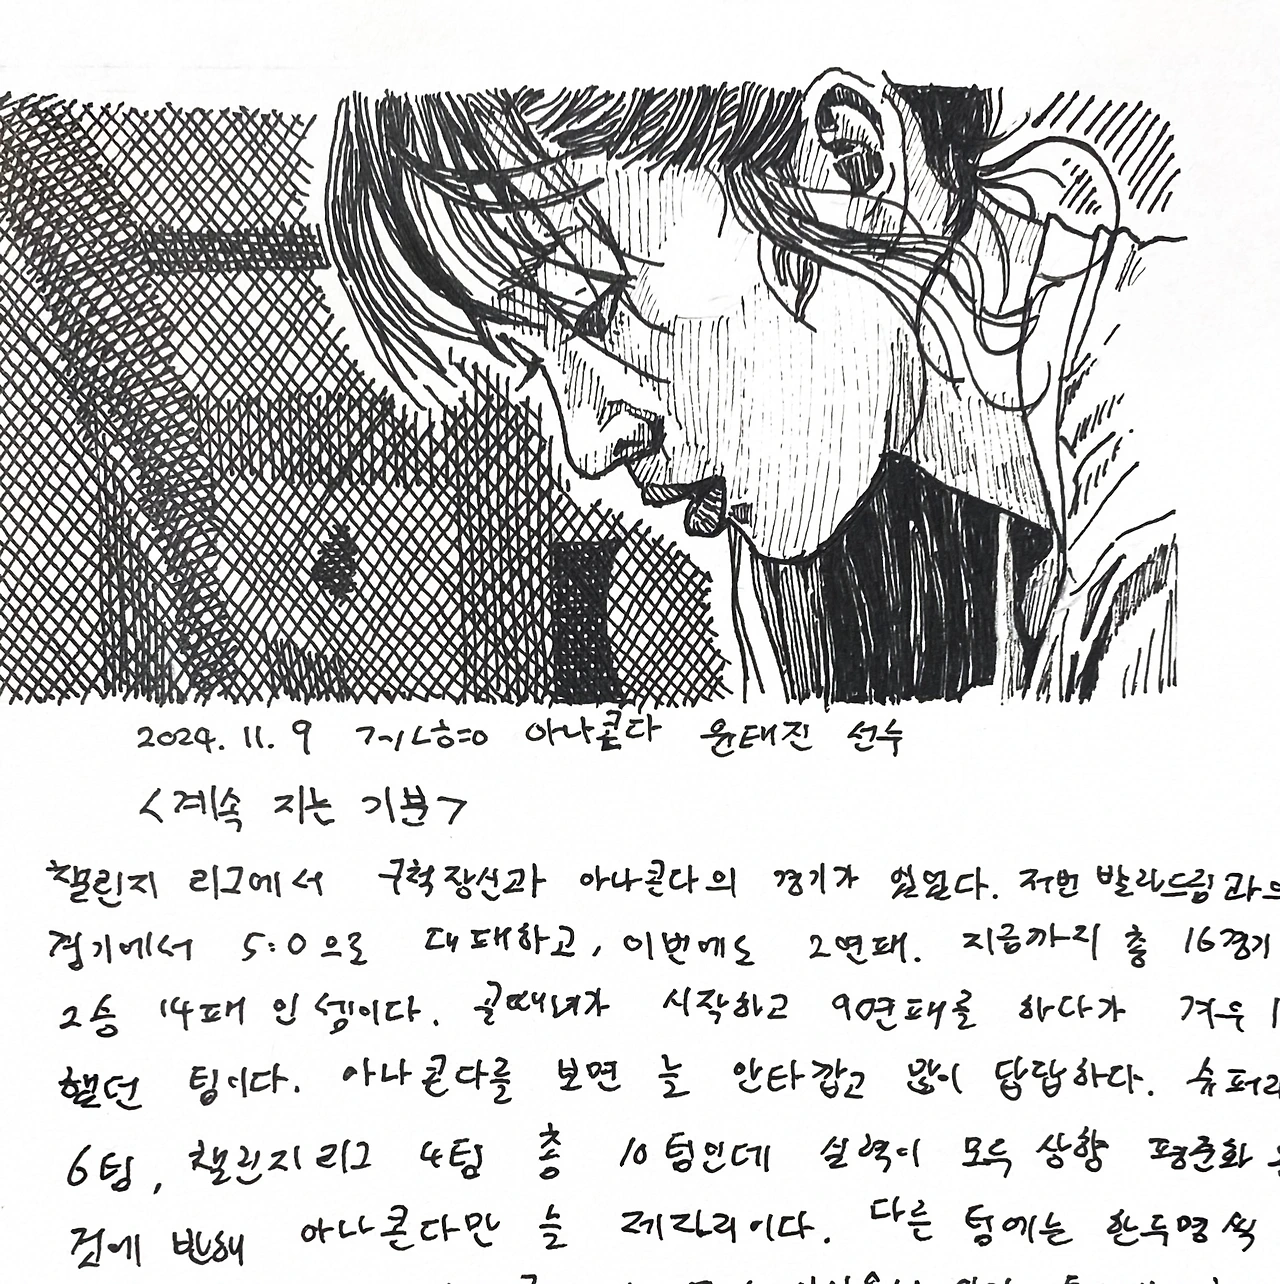 2024. 11. 9 아나콘다 윤태진 선수
<계속 지는 기분>
챌린지 리그에서 구척장신과 아나콘다의 경기가 있었다. 저번 발라드림과의
경기에서 5:0으로 대패하고, 이번에도 2연패. 지금까지 총 16경기
2승 14패 인 셈이다. 골때녀가 시작하고 9연패를 하다가 겨우 1
했던 팀이다. 아나콘다를 보면 늘 안타깝고 많이 답답하다. 슈퍼리
6팀, 챌린지리그 4팀 총 10팀인데 실력이 모두 상향 평준화
것에 반해 아나콘다만 늘 제자리이다. 다른 팀에는 한두명씩